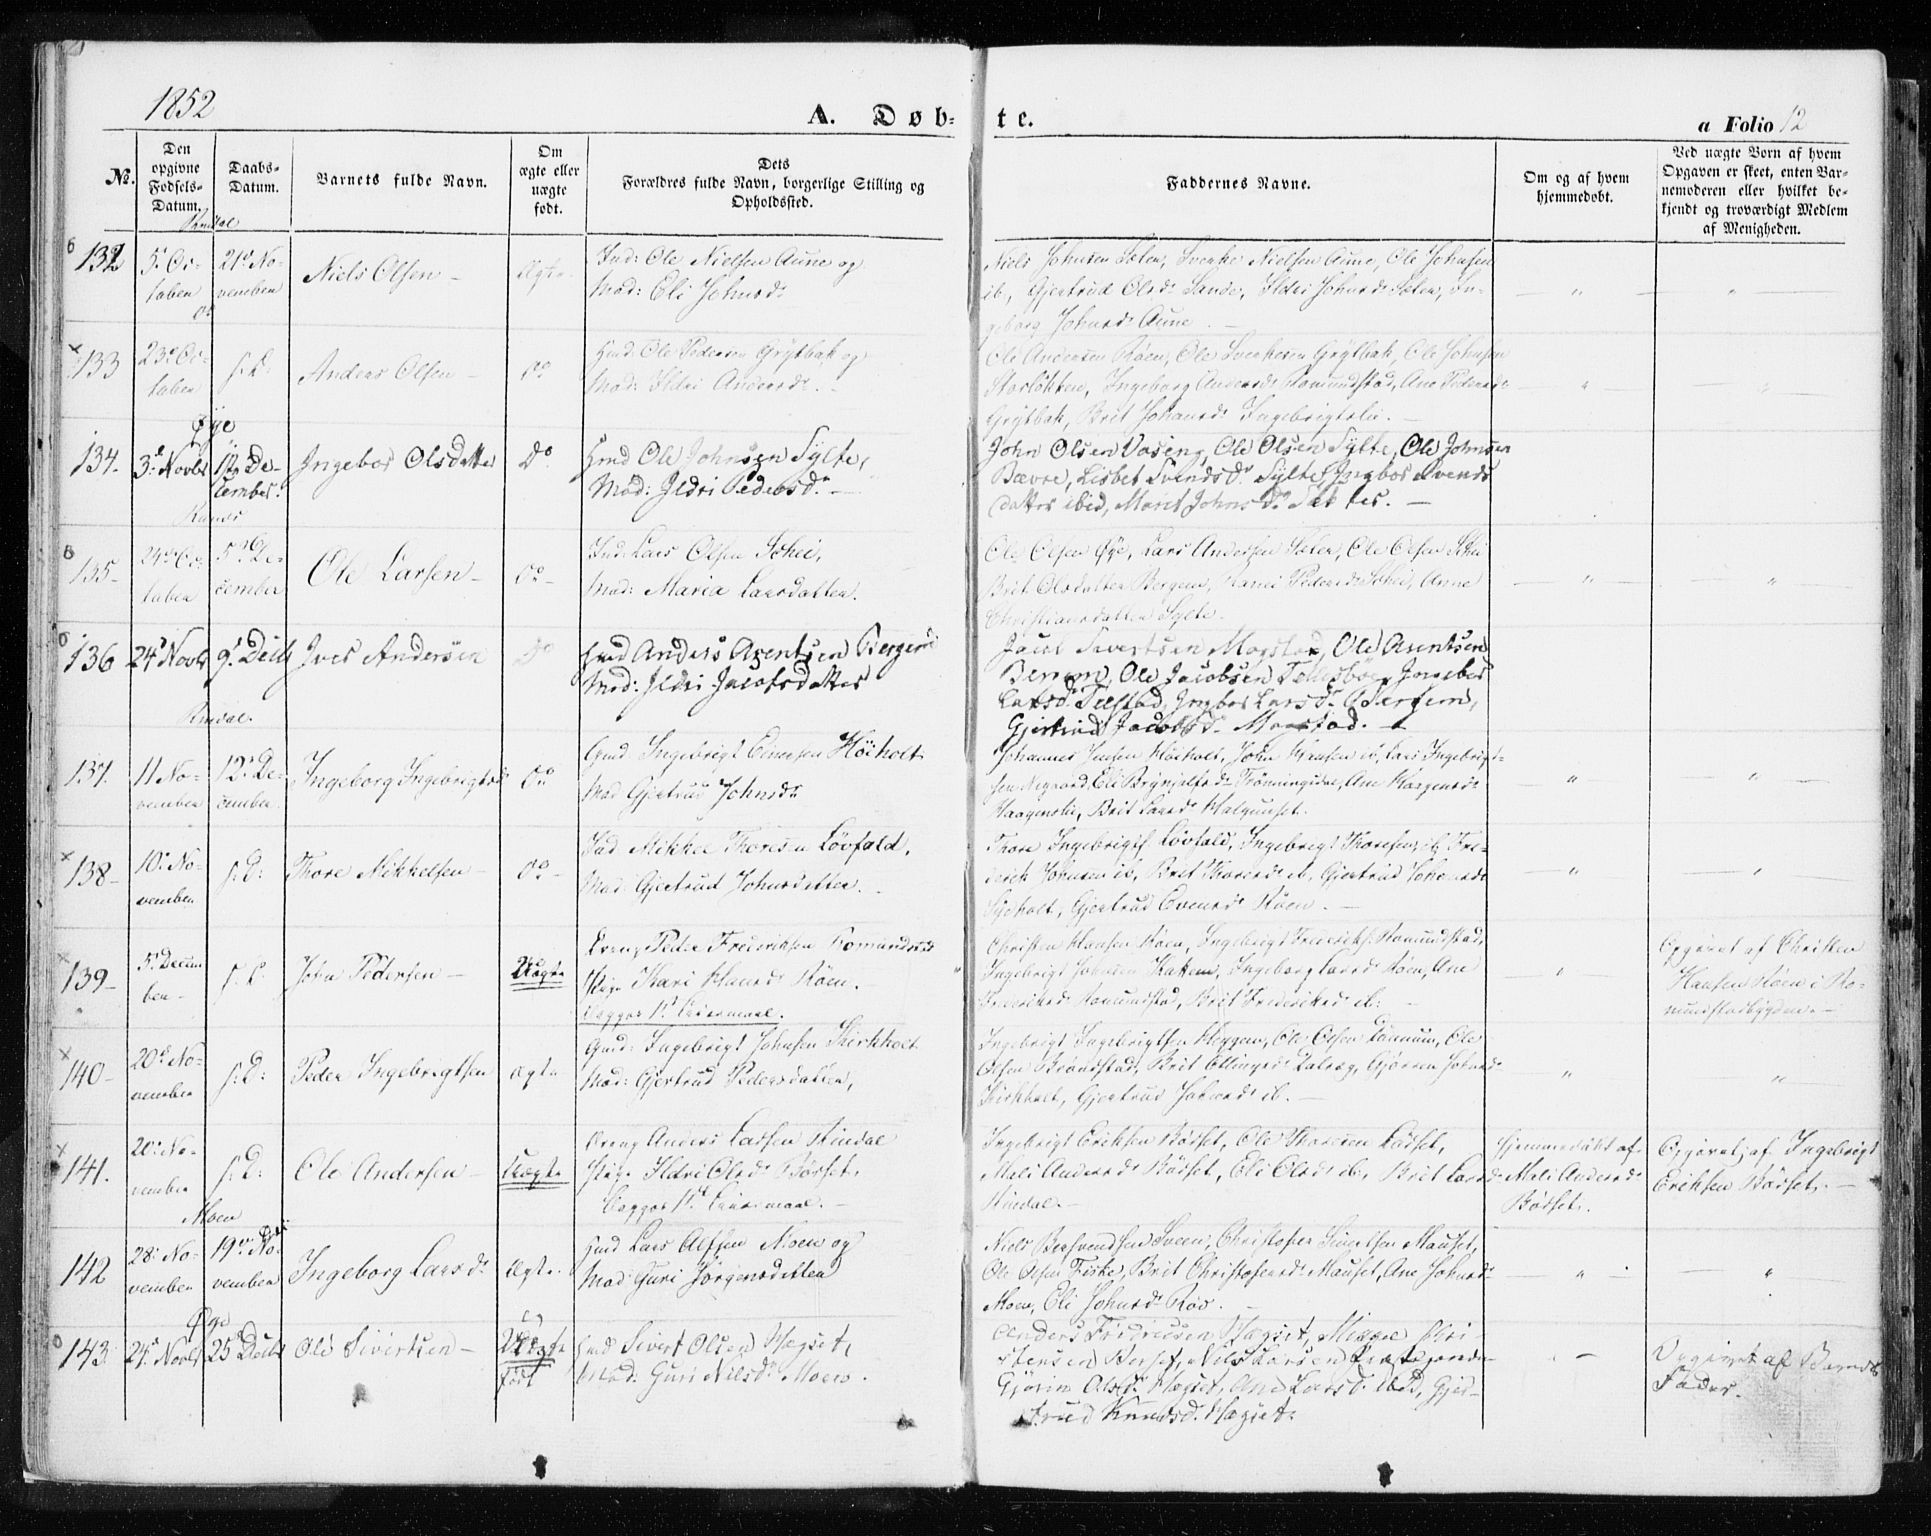 1852
A. Døb-
te.
a Folio 12
No.
Den opgivne Fødsels-Datum.
Daabs-Datum.
Barnets fulde Navn.
Om ægte eller uægte født.
Dets Forældres fulde Navn, borgerlige Stilling og Opholdssted.
Faddernes Navne.
Om og af hvem hjemmedøbt.
Ved uægte Born af hvem Opgaven er skeet, enten Barnemoderen eller hvilket bekjendt og troværdigt Medlem af Menigheden.
Rindal
132 5. October 21de November Niels Olsen Ægte
Ind: Ole Nielsen Aune og
Mod: Eli Johnsdr
Niels Johnsen Sæter, Svenke Nielsen Aune, Ole Johnsen
ib, Gjertrud Olsdr Sande, Ildri Johnsdr Sæter, In-
geborg Johnsdr Aune. —
133 23de October s: D: Anders Olsen Do
Hmd: Ole Pedersen Grytbak og
Mod: Ildri Andersdr. —
Ole Andersen Røen, Ole Svenkesen Grytbak, Ole Johnsen
Storløkken, Ingeborg Andersdr Romundstad, Ane Pedersdr
Grytbak, Brit Johansdr Ingebrigtslie. —
Øye
134. 3d Novbr December. Ingebor Olsdatter Do
Hmd Ole Johnsen Sylte,
Mod: Ildri Pedersdr. —
John Olsen Vaseng, Ole Olsen Sylte, Ole Johnsen
Bævre, Lisbet Svendsdr Sylte, Ingbor Svends
datter ibid, Marit Johnsdr Sæter. —
135 24de October 5te December Ole Larsen Do
Ind: Lars Olsen Schei,
Mod: Maria Larsdatter.
Ole Olsen Øye, Lars Andersen Sæter, Ole Olsen Schei
Brit Olsdatter Bergem, Marei Pedersdr Schei, Anne
Christiansdatter Sylte.
136 24d Novbr 9d Decbr Iver Andersen Do
Hmd Anders Arentsen Bergem
Mod: Ildri Jacobsdatter
Jacob Sivertsen Mogstad, Ole Arentsen
Bergem, Ole Jacobsen Tellesbøe, Ingebor
Larsdr Telstad, Ingbor Larsdr Bergem,
Gjertrud Jacobsdr Mogstad. —
Rindal.
137. 11 November 12te December Ingeborg Ingebrigtsdr Do
Gmd Ingebrigt Evensen Høiholt
Mod Gjertrud Johnsdr
Johannes Jensen Høiholt, John Hansen ib, Lars Ingebrigt-
sen Negaard, Eli Brynjulfsdr Trønningsdal, Ane Haagensdr
Haagenslie, Brit Larsdr Halgunset. —
138 10. November s: D: Thore Mikkelsen Do
Ind Mikkel Thoresen Løvfald,
Mod: Gjertrud Johnsdatter. —
Thore Ingebrigts Løvfald, Ingebrigt Thoresen ib, Fre-
derik Johnsen ib, Brit Thoresdr ib, Gjertrud Johnsdr
Høiholt, Gjertrud Evensdr Røen. —
139 5. December s: D: John Pedersen Uægte
Dreng Peder Frederiksen Romundstad
Pige Kari Hansdr Røen. —
Begges 1ste Leiermaal.
Christen Hansen Røen, Ingebrigt Frederiks: Romundstad,
Ingebrigt Johnsen Kattem, Ingeborg Larsdr Røen, Ane
Frederiksdr Romundstad, Brit Frederiksdr ib: —
Opgivet af Christen
Hansen Røen i Ro-
mundstadbygden. —
140 20de November s: D: Peder Ingebrigtsen Ægte
Gmd: Ingebrigt Johnsen Kirkholt
Mod: Gjertrud Pedersdatter,
Ingebrigt Ingebrigtsen Heggem, Ole Olsen,
Olsen Brøndstad, Brit Ellingsdr, Gjøren Johnsdr
Kirkholt, Gjertrud Johnsdr ib. —
141. 20de November s: D: Ole Andersen Uægte
Dreng Anders Larsen Rindal
Pige Ildri Olsdr Børset,
Begges 1ste Leiermaal. —
Ingebrigt Eriksen Børset, Ole Thoresen Børset,
Mali Andersdr Børset, Eli Olsdr ib, Brit Larsdr
Rindal. —
Hjemmedøbt af
Mali Andersdr
Børset.
Opgivet af Ingebrigt
Eriksen Børset. —
Moen
142 28. November 19de November Ingeborg Larsdr Ægte
Hmd Lars Olsen Moen og
Mod: Guri Jørgensdatter
Niels Bersvendsen Sveen, Christopher Sivertsen Mauset,
Ole Olsen Fiske, Brit Christophersdr Mauset, Ane Johnsdr
Moen, Eli Johnsdr Røv. —
Øye
143. 24d Novbr 25d Decbr Ole Sivertsen Uægte født
Hmd Sivert Olsen Hægset,
Mod: Guri Nilsdr Moen.
Anders Fredriksen Hægset, Mikkel Chri-
stensen Børset, Nils Larsen
Gjørin Olsdr Hægset, Ane Larsdr ibid, Gjer-
trud Knudsdr Hægset.
Opgivet af Barnets
Fader.